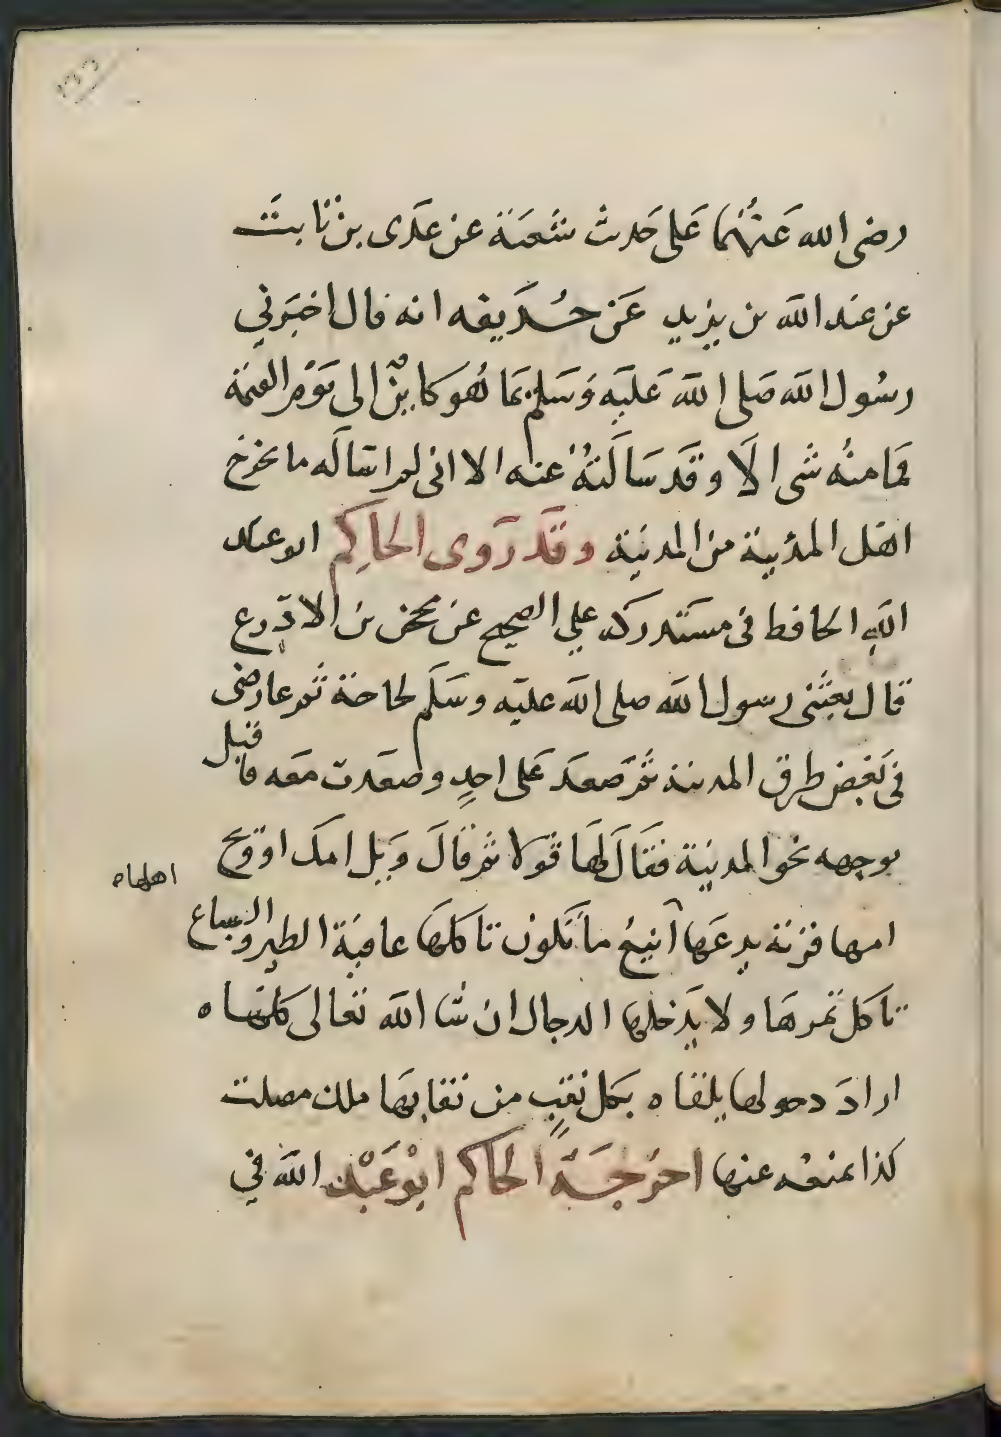 رضى الله عَنْهُما عَلى حَدث شعبَة عن عَدى بن ثابت
عن عبد الله بن يزيد عَن حُذَيفه انه قال اخبَرني
رسُول الله صَلى الله عَليَه وَسَلم بمَا هُوَ كايِنٌ الى يَوَم القيمَة
فمَا منُه شى الَا وقَد سَالَتهُ عنه الا انى لم اسَاله ما يخرج
اهَل المدُينة من المدينة وقَد رَوى الحاكِم ابو عبد
الله الحافظ فى مستَدركه علي الصحيح عن محجن بن الادرع
قال بعثَنى رسول الله صلى الله عليَه وسَلَم لحاجة ثم عارضنى
فى بَعض طرق المدينة ثمَ صعدَ عَلى احدٍ وصعدت مَعه فاقبل
بوجهه نحو المدينة فقَالَ لهَا قولا ثم قالَ وَيل امك او وَيح
امها قرية يدعَها اهلها اينعُ ما تكون تاكلهَا عافية الطير والسباع
اهلهاه
تاكل ثمرهَا ولا يَدخلها الدجال ان شَا الله تعالى كلمَا
ارادَ دخولها يلقاه بكل نقبٍ من نقابهَا ملك مصلت
كذا يمنعُه عنها اخرجَهَ الحاكم ابوْ عَبْد الله في